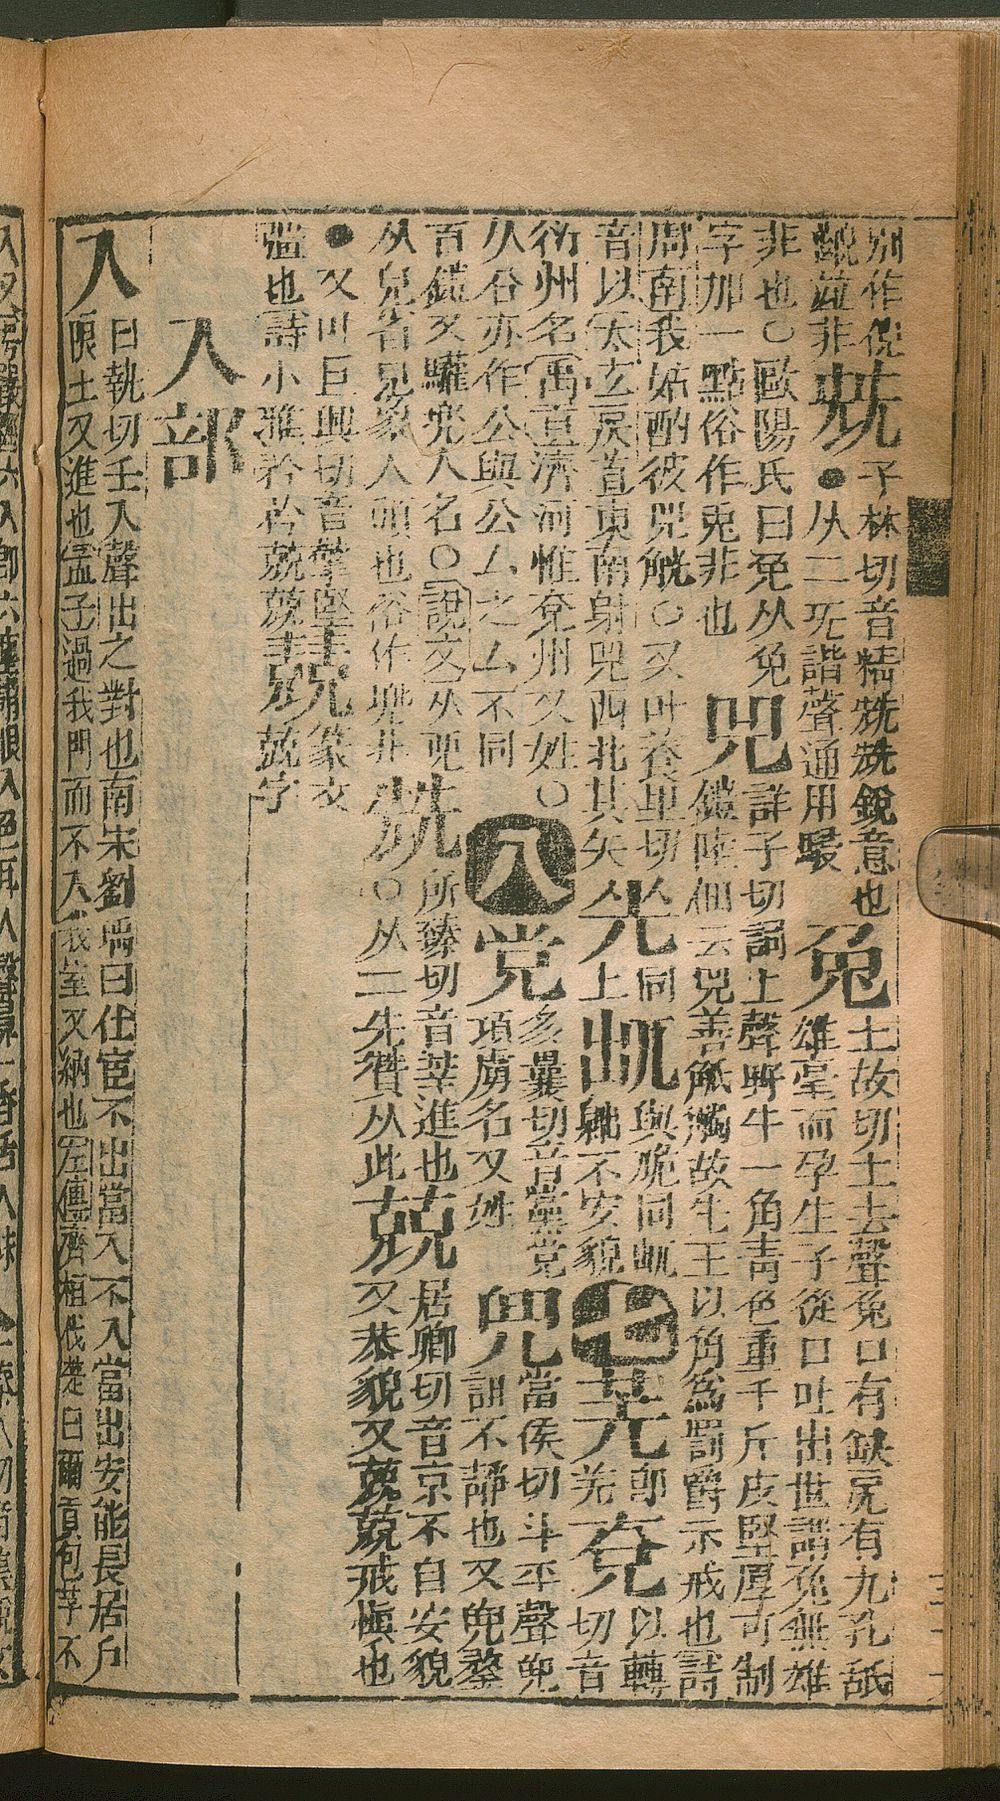 別作俔齯並非兓子林切音兓兓銳意也●从二旡諧聲通用兔土故切土去聲兔口有缺尻有九孔舐雄毫而孕生子從口吐出世謂兔無雄
非也○歐陽氏曰兔从免字加一點俗作兎非也兕詳子切詞上聲野牛一角青色重千斤皮堅厚可制鎧陸佃云兕善觝觸故先王以角為罰爵示戒也詩
周南我姑酌彼兕觥○又叶養里切音以太玄戾首東南射兕西北其矢同上與脆同臲不安貌七郎羌兗以轉切音
衍州名禹貢濟河惟兗州又姓○从㕣亦作公與公厶之厶不同八党多曩切音黨党項虜名又姓兜當侯切斗平聲兜訓不靜也又兜鍪
首鎧又驩兜人名○說文从兜从兒省皃象人頭也俗作兠非兟所臻切音莘進也○从二先贊从此兢居卿切音京不自安貌又恭貌又兢兢戒慎也
●又叶巨興切音擎堅彊也詩小雅矜矜兢兢篆文兢字
入部
入日執切壬入聲出之對也南宋劉瑀曰仕宦不出當入不入當出安能長居戶限上又進也孟子過我門而不入我室又納也左傳齊桓伐楚曰爾貢包茅不